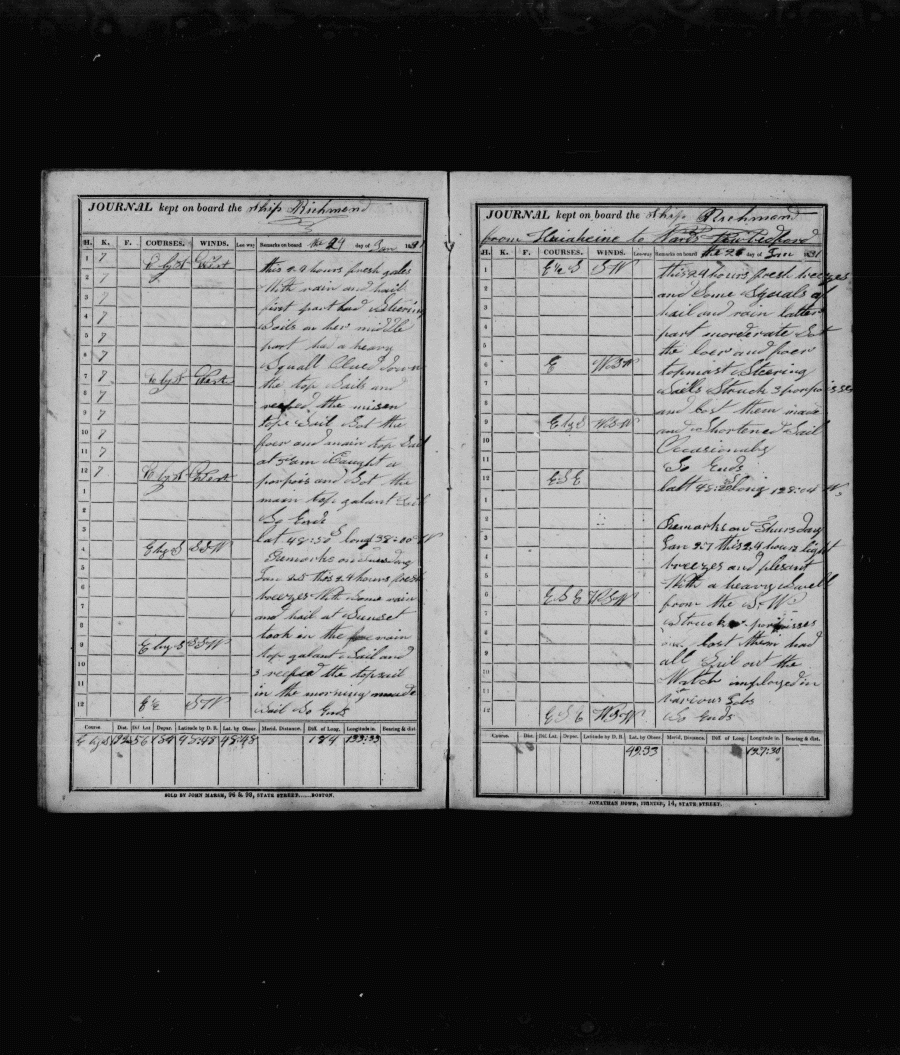 JOURNAL kept on board the Ship Richmond
H. K. F. COURSES. WINDS. Lee way Remarks on board the 24 day of Jan 1831
1 7 E by N West this 24 hours fresh gales
2 7 With rain and hail
3 7 first part had Steering
4 7 Sails on her middle
5 7 part had a heavy
6 7 Squall Clued down
7 7 E by N West the top Sails and
8 7 reefed the misen
9 7 top Sail Set the
10 7 foer and main top Sail
11 7 at 5 Caught a
12 7 E by N West porpois and Set the
1 main top galant Sail
2 So Ends
3 lat 48:50 S long 138:00 W
4 E by S SSW Remarks on Tuesday
5 Jan 25 this 24 hours fresh
6 breezes With Some rain
7 and hail at Sunset
8 took in the main
9 E by S SSW top galant Sail and
10 reefed the topsail
11 in the morning made
12 SW Sail So Ends
Course. Dist. Dif. Lat. Depar. Latitude by D. R. Lat. by Obser. Merid. Distance. Diff. of Long. Longitude in Bearing & dist.
E by S 56 154 48:48
SOLD BY JOHN MARSH, 96 & 98, STATE STREET......BOSTON.
JOURNAL kept on board the Ship Richmond
from to Wards New Bedford
H. K. F. COURSES. WINDS. Leeway Remarks on board the 26 day of Jan 1831
1 SW this 24 hours fresh breezes
2 and Some Squals of
3 hail and rain latter
4 part morederate Set
5 the loer and foer
6 E WSW topmast Steering
7 Sails Struck 3 porpoisses
8 and lost them made
9 E by S WSW and Shortened Sail
10 Occasionaly
11 So Ends
12 ESE latt long 128:04 W
1
2 Remarks on Thursday
3 Jan 27 this 24 hours light
4 breezes and plesant
5 With a heavy Swell
6 ESE WSW from the S. W.
7 Struck porpisses
8 and lost them had
9 all Sail out the
10 Watch imployed in
11 various Jobs
12 ESE WSW So Ends
Course. Dist. Dif. Lat. Depar. Latitude by D. R. Lat. by Obser. Merid. Distance. Diff. of Long. Longitude in Bearing & dist.
49:33 127:30
JONATHAN HOWE, PRINTER, 14, STATE STREET.